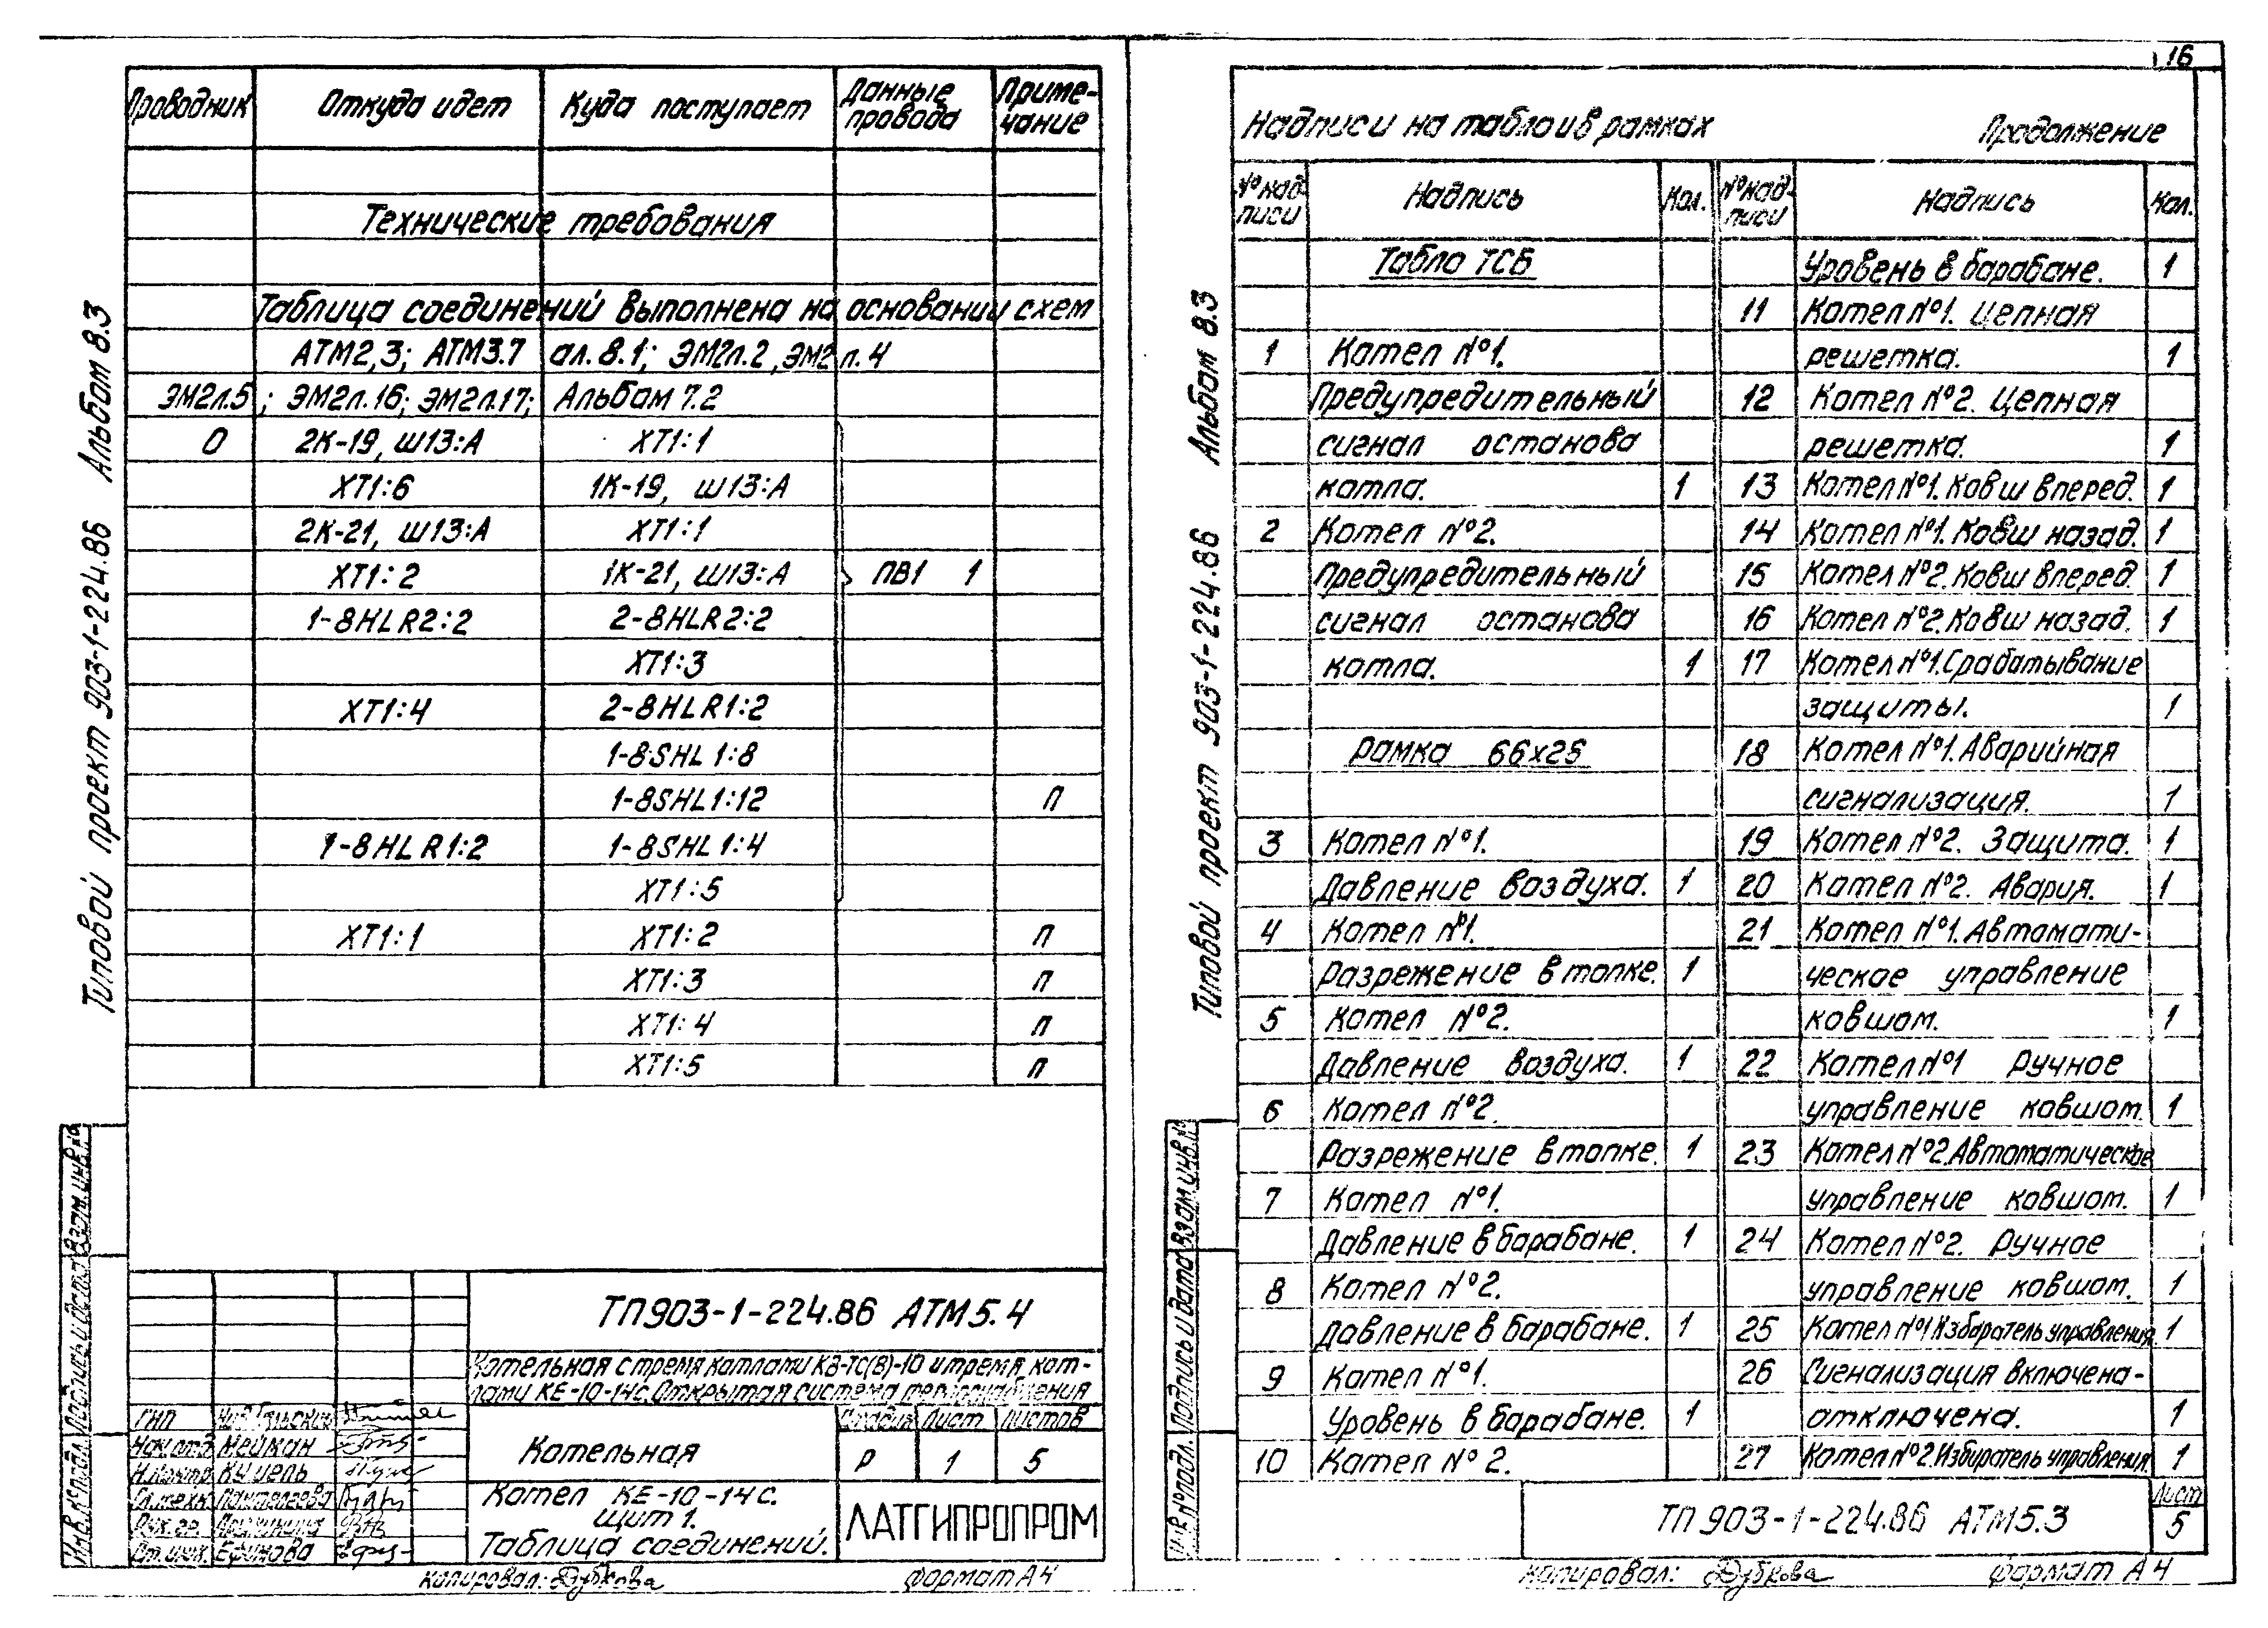 16
Проводник Откуда идет Куда поступает Данные провода Приме-чание
Технические требования
Таблица соединений выполнена на основании схем
АТМ2,3; АТМ3.7 ал.8.1; ЭМ2л.2, ЭМ2 л.4
ЭМ2л.5; ЭМ2л.16; ЭМ2л.17; Альбом 7.2
0 2К-19, Ш13:А ХТ1:1
ХТ1:6 1К-19, Ш13:А
2К-21, Ш13:А ХТ1:1
ХТ1:2 1К-21, Ш13:А ПВ1 1
1-8HLR2:2 2-8HLR2:2
ХТ1:3
ХТ1:4 2-8HLR1:2
1-8SHL1:8
1-8SHL1:12 П
1-8HLR1:2 1-8SHL1:4
ХТ1:5
ХТ1:1 ХТ1:2 П
ХТ1:3 П
ХТ1:4 П
ХТ1:5 П
Типовой проект 903-1-224.86 Альбом 8.3
Инв.№ подл. Подпись и дата Взам.инв.№
ТП903-1-224.86 АТМ5.4
Котельная с тремя котлами КВ-ТС(В)-10 и тремя кот-
лами КЕ-10-14с. Открытая система теплоснабжения
ГИП
Нач.отд Мейман
Н.контр
Гл.техн Пантелеева
Рук.гр.
Ст.инж. Ефимова
Котельная
Стадия Лист Листов
Р 1 5
Котел КЕ-10-14с.
Щит 1.
Таблица соединений.
ЛАТГИПРОПРОМ
Копировал: Дубкова Формат А4
Надписи на табло и в рамках Продолжение
№ над-писи Надпись Кол. № над-писи Надпись Кол.
Табло ТСБ Уровень в барабане. 1
11 Котел №1. Цепная
1 Котел №1. решетка. 1
Предупредительный 12 Котел №2. Цепная
сигнал останова решетка. 1
котла. 1 13 Котел №1. Ковш вперед. 1
2 Котел №2. 14 Котел №1. Ковш назад. 1
Предупредительный 15 Котел №2. Ковш вперед. 1
сигнал останова 16 Котел №2. Ковш назад. 1
котла. 1 17 Котел №1. Срабатывание
защиты. 1
Рамка 66х26 18 Котел №1. Аварийная
сигнализация. 1
3 Котел №1. 19 Котел №2. Защита. 1
Давление воздуха. 1 20 Котел №2. Авария. 1
4 Котел №1. 21 Котел №1. Автомати-
Разрежение в топке. 1 ческое управление
5 Котел №2. ковшом. 1
Давление воздуха. 1 22 Котел №1 Ручное
6 Котел №2. управление ковшом. 1
Разрежение в топке. 1 23 Котел №2. Автоматическое
7 Котел №1. управление ковшом. 1
Давление в барабане. 1 24 Котел №2. Ручное
8 Котел №2. управление ковшом. 1
Давление в барабане. 1 25 Котел №1 Избиратель управления. 1
9 Котел №1. 26 Сигнализация включена-
Уровень в барабане. 1 отключена. 1
10 Котел №2. 27 Котел №2. Избиратель управления 1
Типовой проект 903-1-224.86 Альбом 8.3
Инв.№ подл. Подпись и дата Взам.инв.№
ТП903-1-224.86 АТМ5.3
Лист
5
Копировал: Дубкова Формат А4